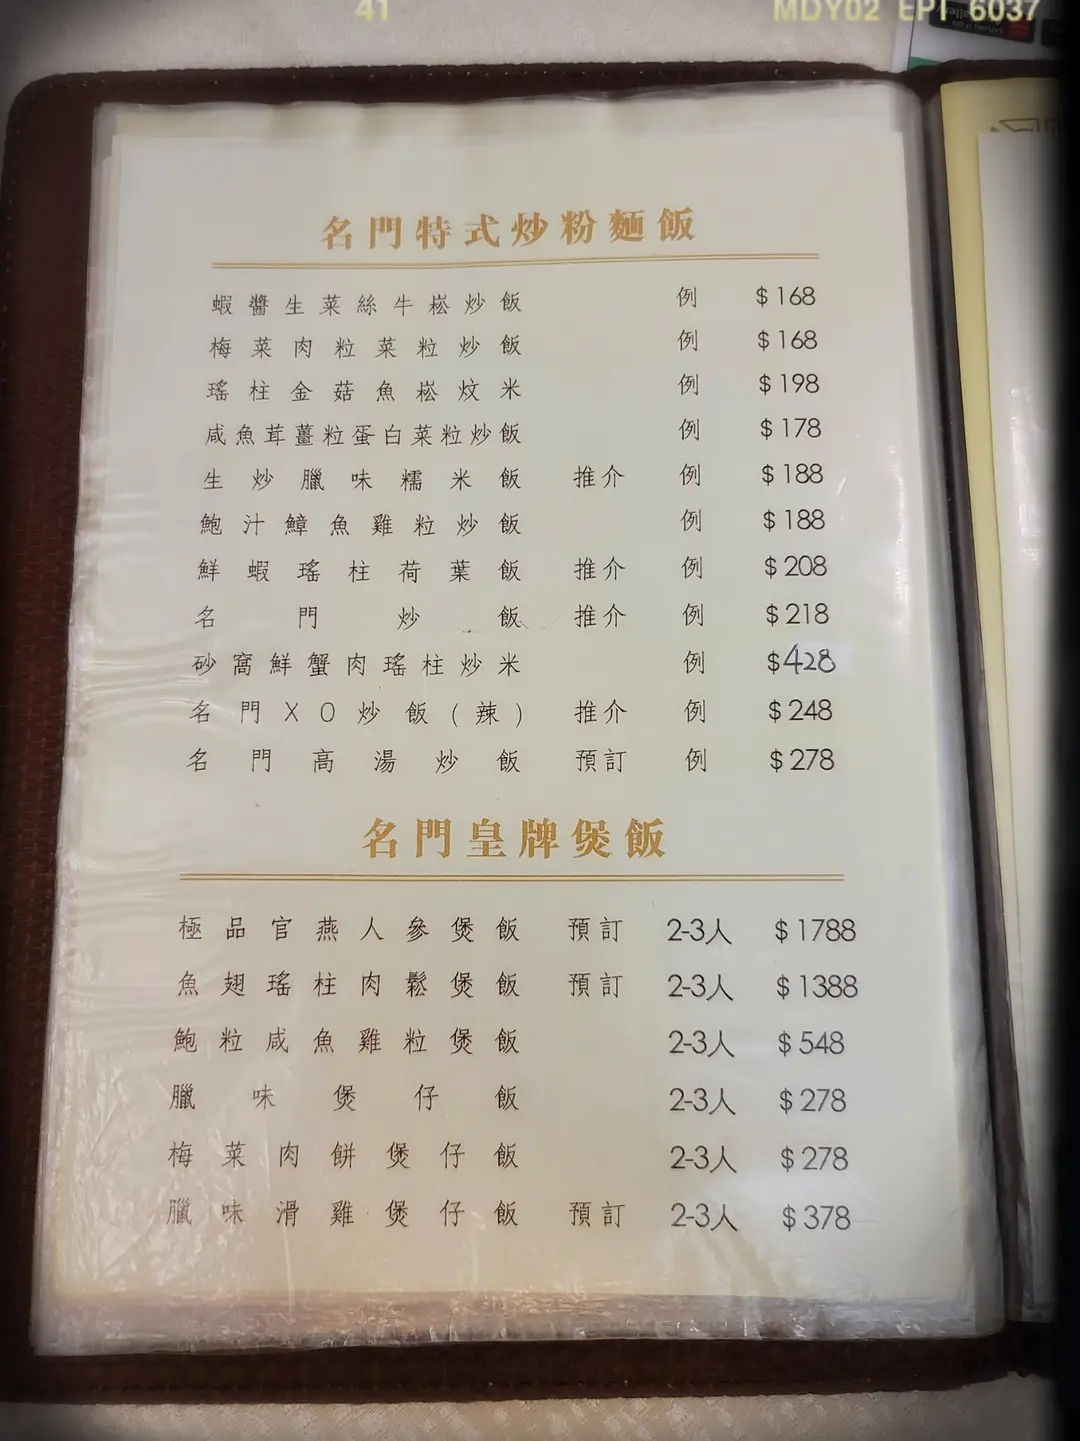 41 MDY02 EPI 6037
名門特式炒粉麵飯
蝦醬生菜絲牛崧炒飯 例 $168
梅菜肉粒菜粒炒飯 例 $168
瑤柱金菇魚崧炆米 例 $198
咸魚茸薑粒蛋白菜粒炒飯 例 $178
生炒臘味糯米飯 推介 例 $188
鮑汁鱆魚雞粒炒飯 例 $188
鮮蝦瑤柱荷葉飯 推介 例 $208
名門炒飯 推介 例 $218
砂窩鮮蟹肉瑤柱炒米 例 $428
名門XO炒飯(辣) 推介 例 $248
名門高湯炒飯 預訂 例 $278
名門皇牌煲飯
極品官燕人參煲飯 預訂 2-3人 $1788
魚翅瑤柱肉鬆煲飯 預訂 2-3人 $1388
鮑粒咸魚雞粒煲飯 2-3人 $548
臘味煲仔飯 2-3人 $278
梅菜肉餅煲仔飯 2-3人 $278
臘味滑雞煲仔飯 預訂 2-3人 $378